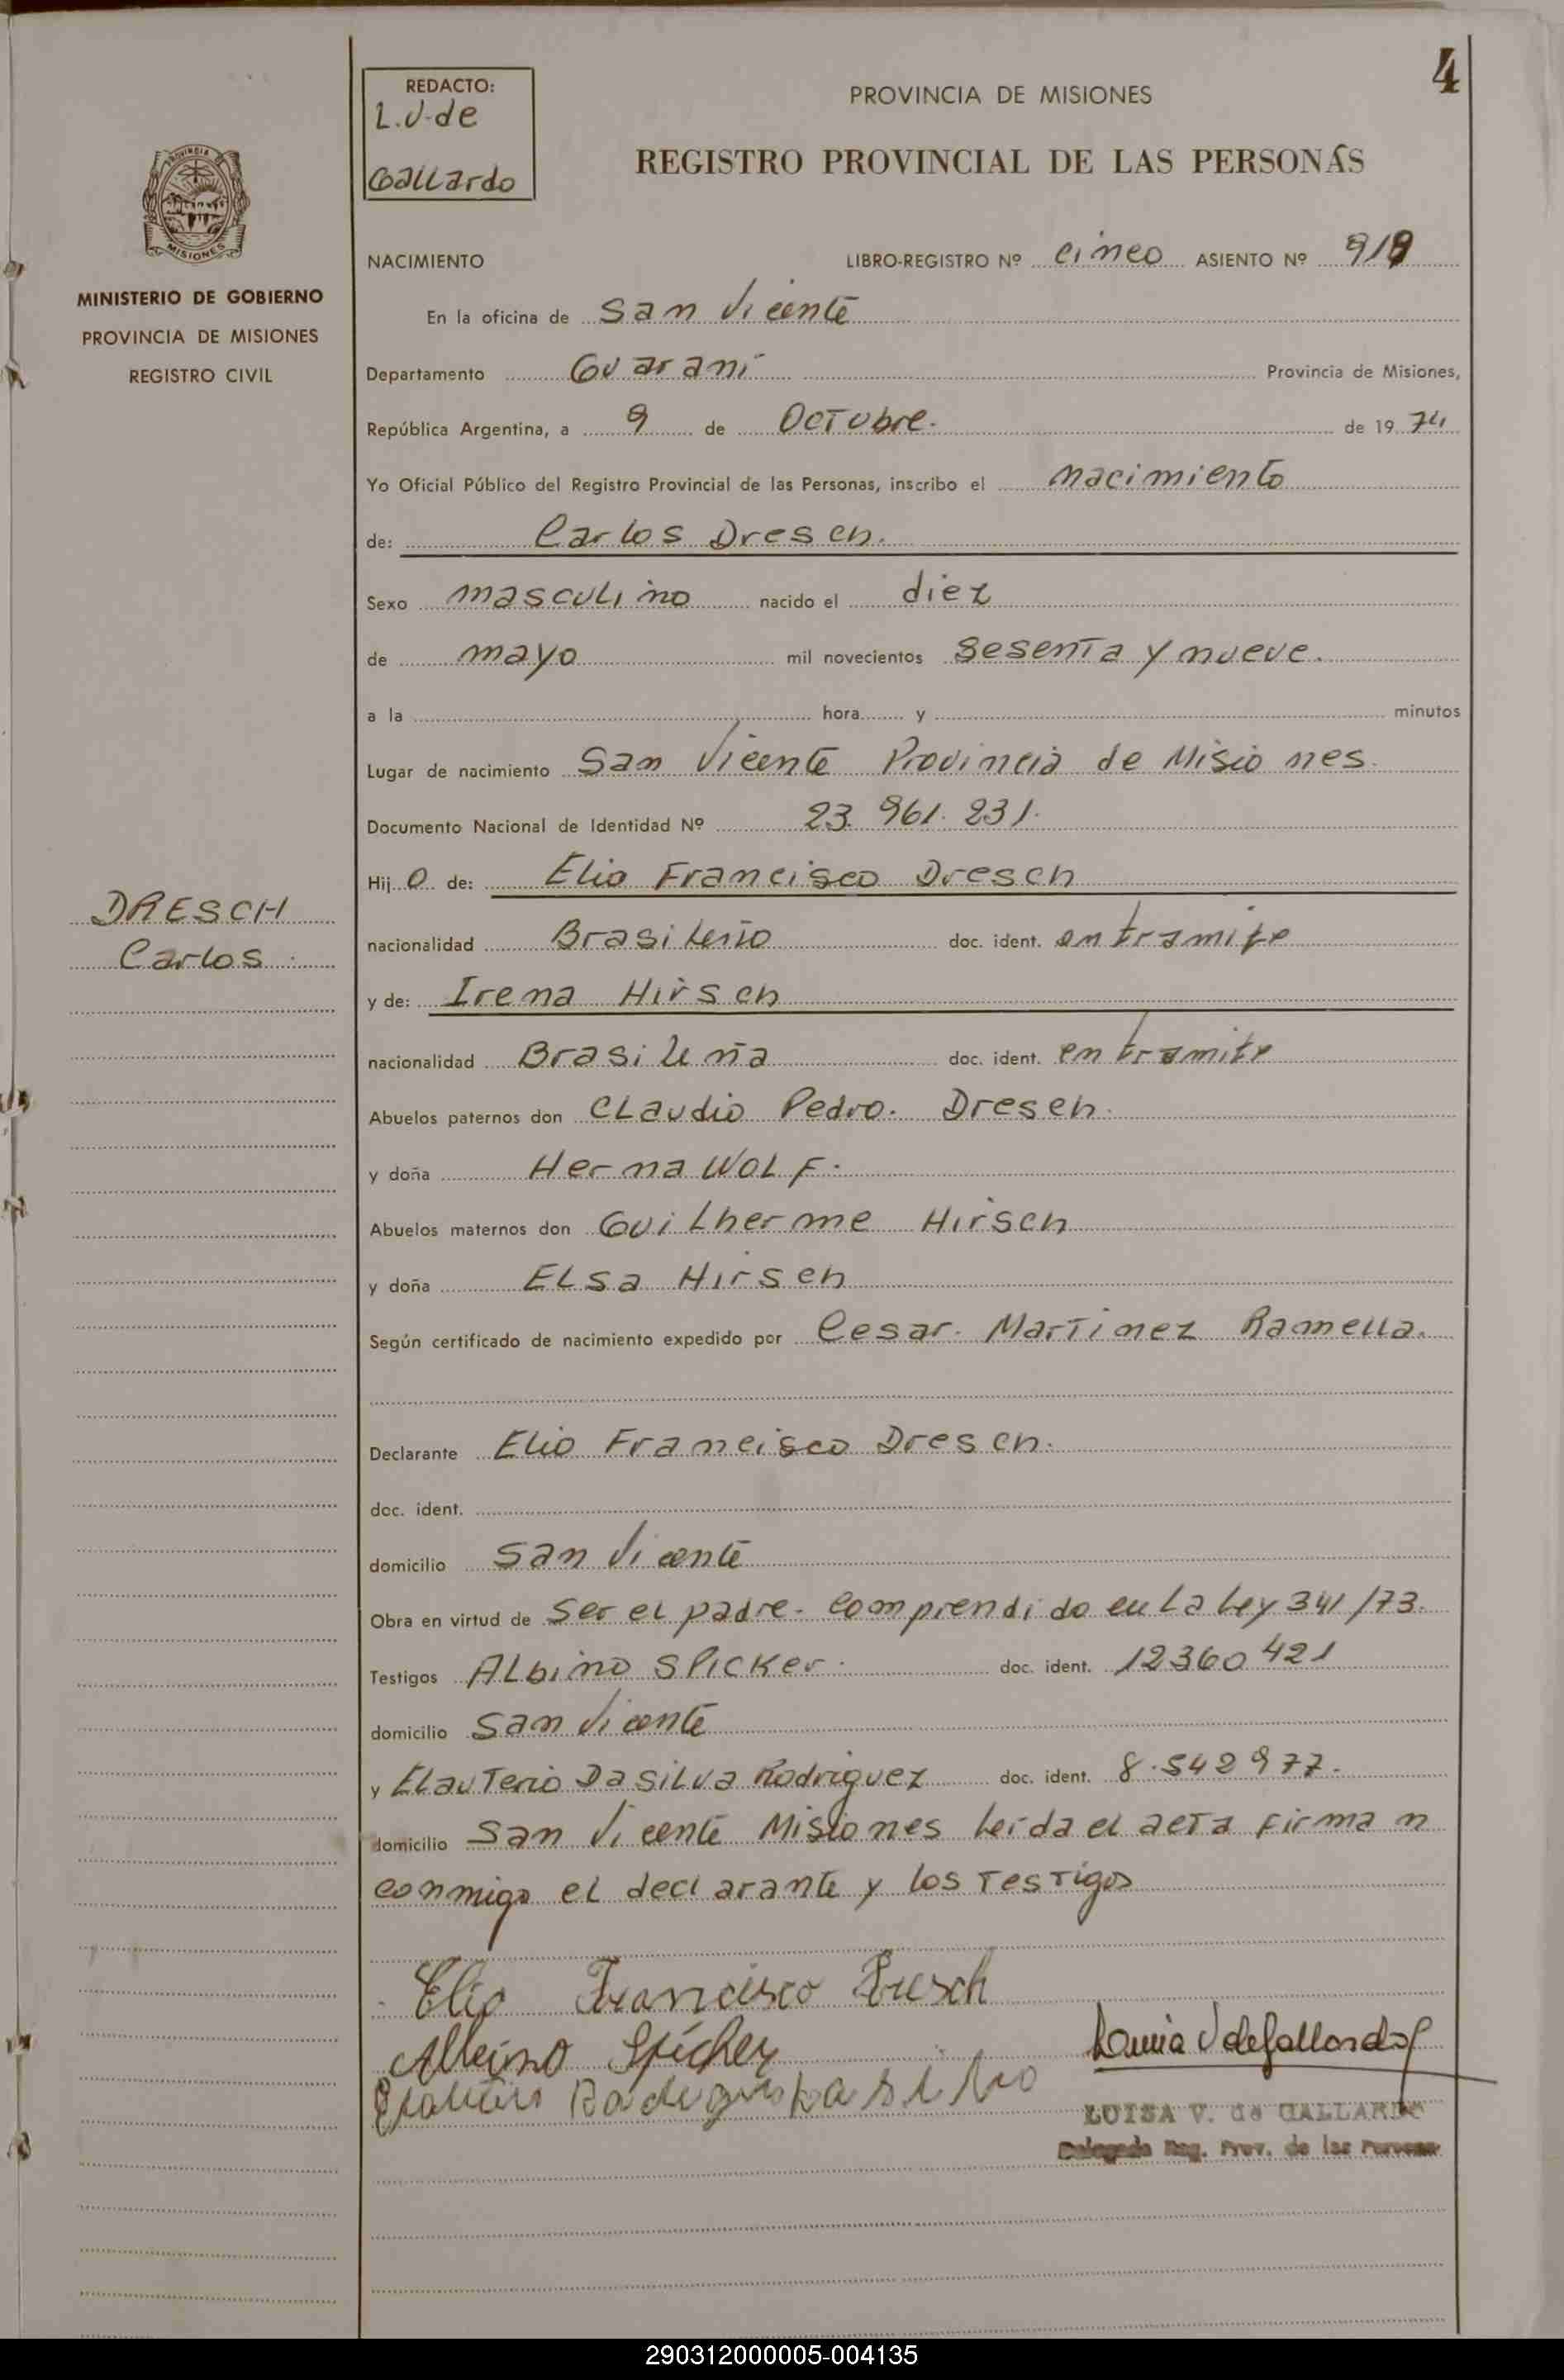 4
REDACTO:
L.V. de
Gallardo
PROVINCIA DE MISIONES
REGISTRO PROVINCIAL DE LAS PERSONAS
PROVINCIA
MISIONES
MINISTERIO DE GOBIERNO
PROVINCIA DE MISIONES
REGISTRO CIVIL
NACIMIENTO LIBRO-REGISTRO Nº cinco ASIENTO Nº
En la oficina de San Vicente
Departamento Guaraní Provincia de Misiones,
República Argentina, a 9 de Octubre. de 19 74
Yo Oficial Público del Registro Provincial de las Personas, inscribo el nacimiento
de: Carlos Dresch.
Sexo masculino nacido el diez
de mayo mil novecientos sesenta y nueve.
a la hora y minutos
Lugar de nacimiento San Vicente Provincia de Misiones.
Documento Nacional de Identidad Nº 23.961.231.
Hij o de: Elio Francisco Dresch
DRESCH
Carlos.
nacionalidad Brasileño doc. ident. en tramite
y de: Irena Hirsch
nacionalidad Brasileña doc. ident. en tramite
Abuelos paternos don Claudio Pedro. Dresch.
y doña Herna Wolf.
Abuelos maternos don Guilherme Hirsch
y doña Elsa Hirsch
Según certificado de nacimiento expedido por Cesar. Martinez Ramella.
Declarante Elio Francisco Dresch.
doc. ident.
domicilio San Vicente
Obra en virtud de ser el padre. comprendido en la ley 341/73.
Testigos Albino Spicker. doc. ident. 12360421
domicilio San Vicente
y Elauterio Dasilva Rodriguez doc. ident. 8.542977.
domicilio San Vicente Misiones leída el acta firman
conmigo el declarante y los testigos
Elio Francisco Dresch
Albino Spicker
LUISA V. de GALLARDO
Delegada Reg. Prov. de las Personas
290312000005-004135